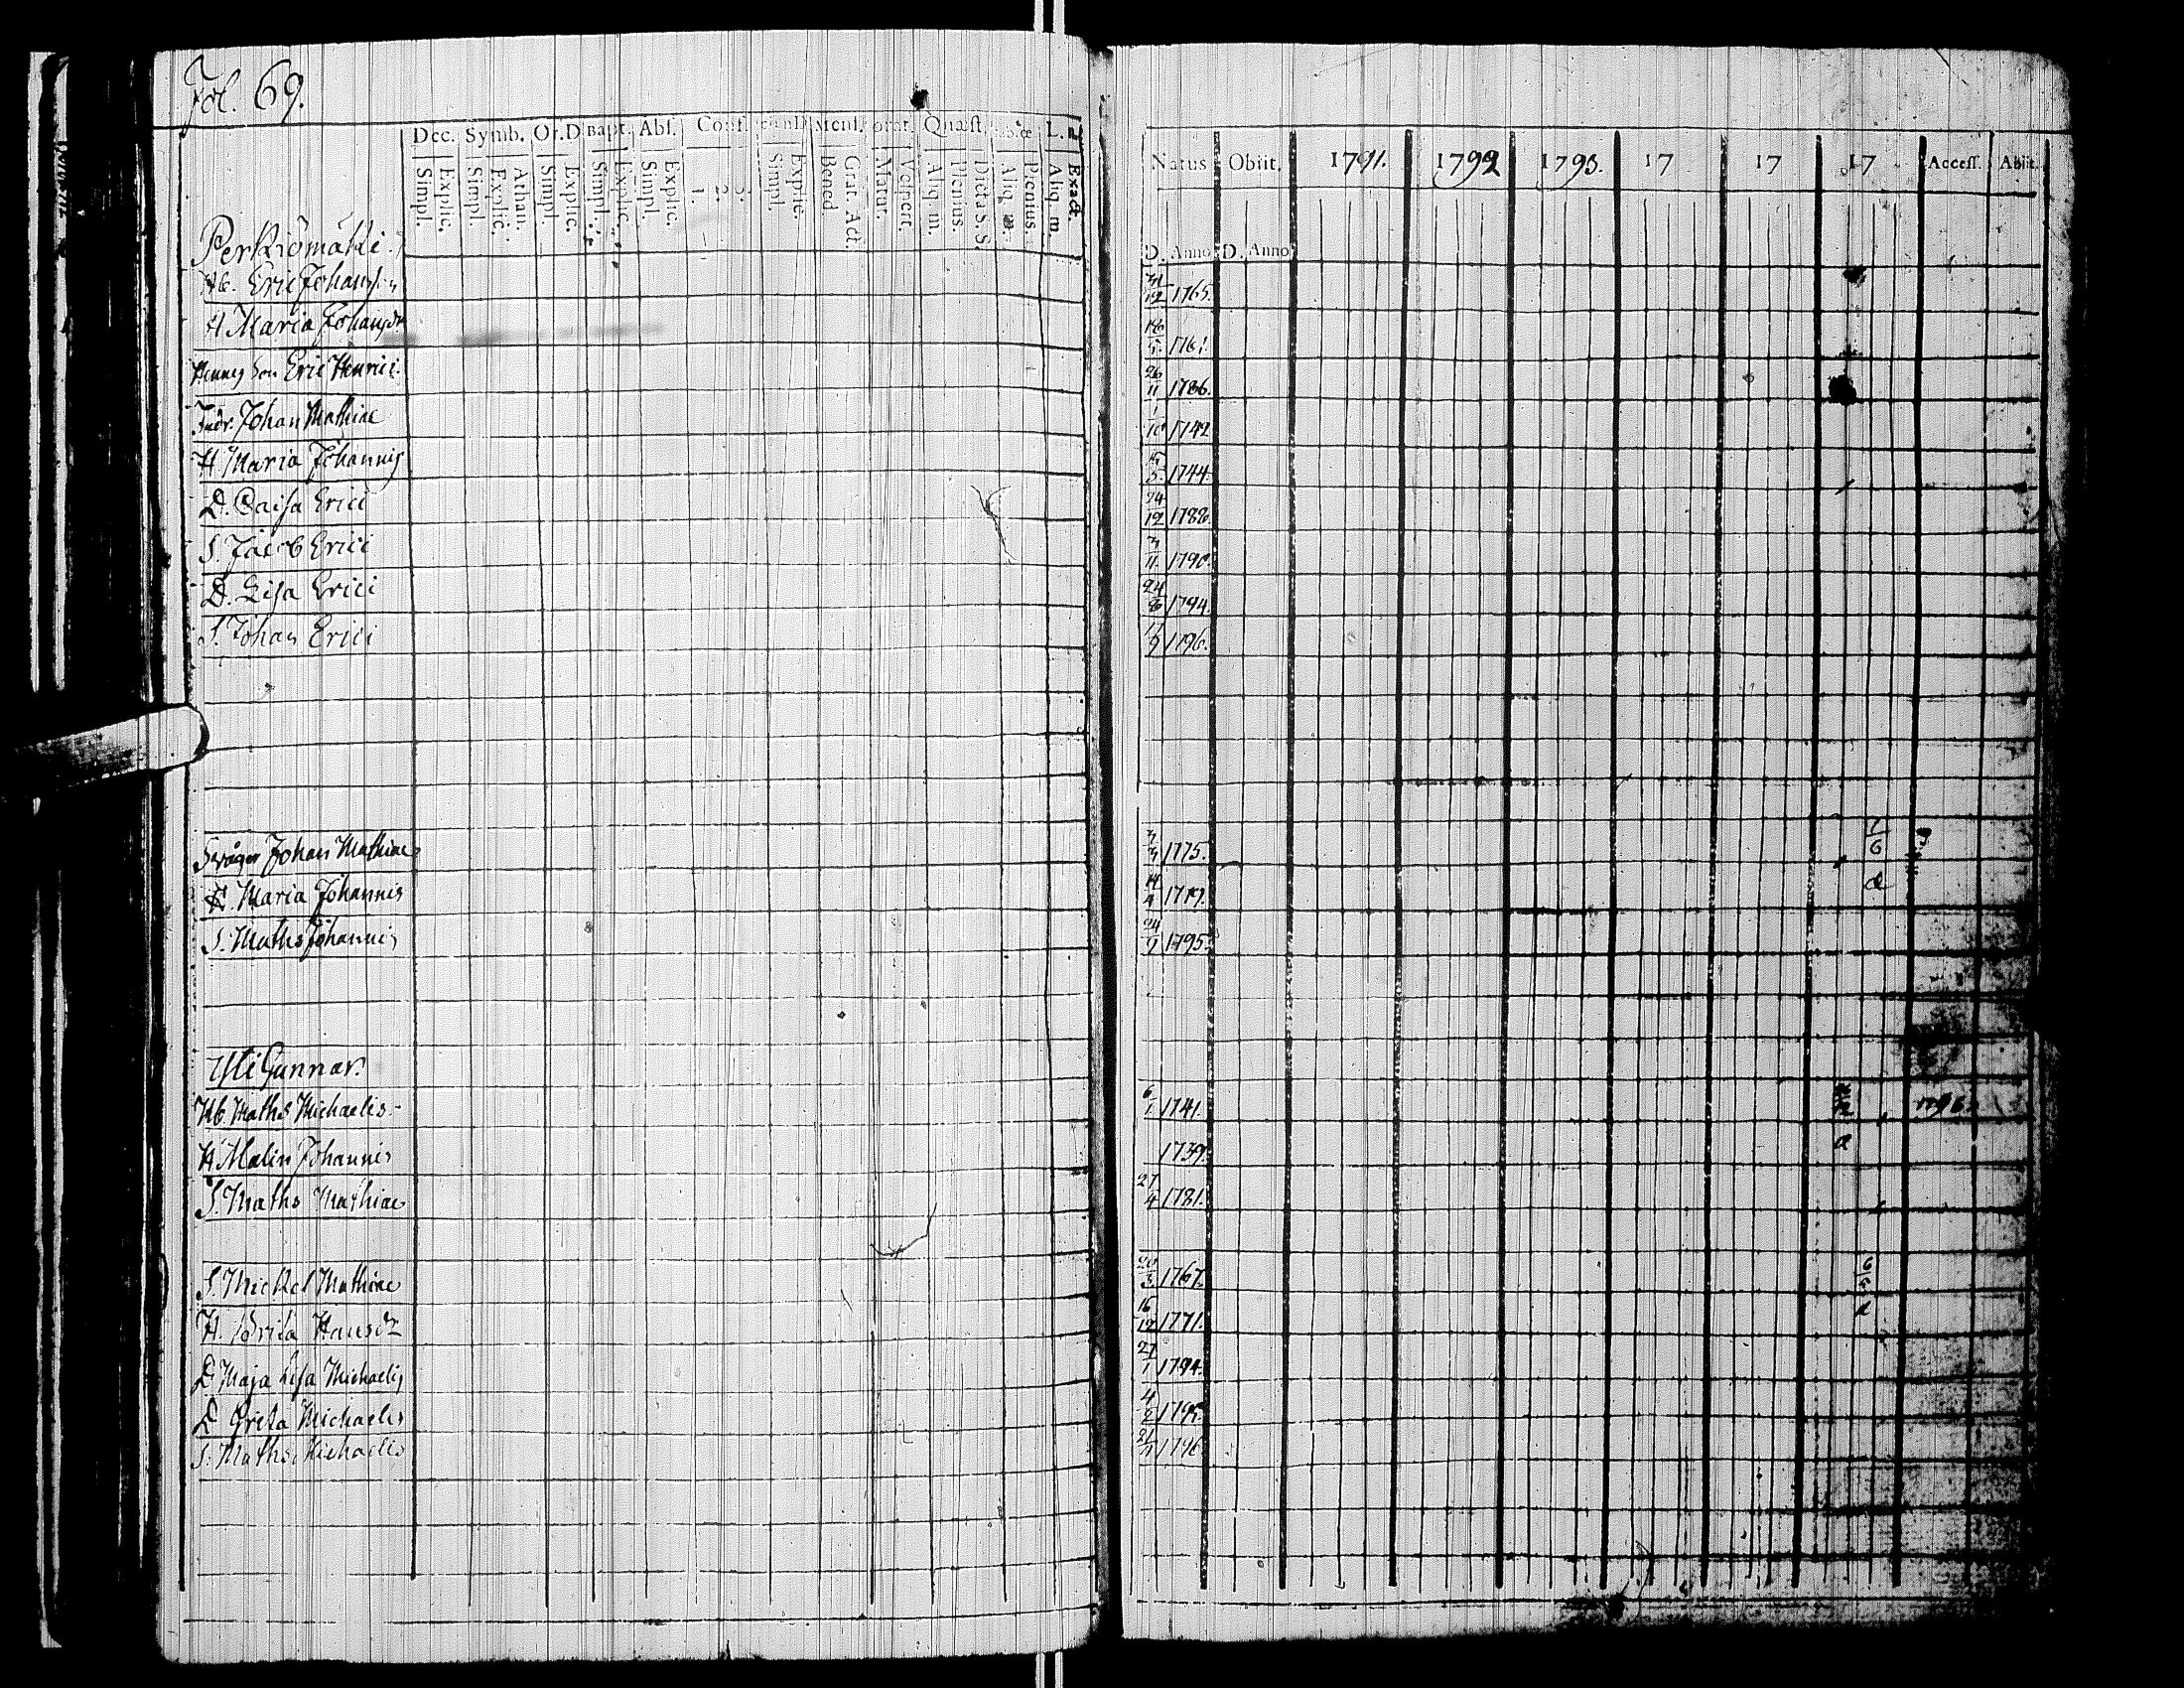 Fol. 69.
Dec. Symb. Or. D Bapt. Abs. Conf. Mens. Quæst. L.
Simpl. Explic. Simpl. Explic. Athan. Simpl. Explic. Simpl. Explic. Simpl. Explic. 1. 2. 3. Simpl. Explic. Bened. Grat. Act. Matut. Vespert. Aliq. m. Plenius. Dicta S. S. Aliq. m. Plenius. Aliq. m. Exacte
Natus Obiit. 1791. 1792 1793. 17 17 17 Access. Abiit.
D. Anno D. Anno
Perkiömäki
Hb. Eric Johansson 1765.
H Maria Johansdr 5 1761.
Son Eric Henrici. 26/11 1786.
Johan Mathiae 1/10 1742
H Maria Johannis 1744.
D. Caisa Erici 24/12 1788.
S. Jacob Erici 3/11 1790.
D. Lisa Erici 24/8 1794.
S. Johan Erici 17/9 1796.
Swåger Johan Mathiae 1775. 7/6
H. Maria Johannis 1779. a
S. Maths Johannis 24/9 1795.
Yli Gunnar.
Hb. Maths Michaelis 6/1 1741. 1796
H Malin Johannis 1739. a
S. Maths Mathiae 27/4 1781.
S. Mickel Mathiae 20/3 1767. 6/5
H. Brita Hansdr 16/12 1771. a
D Maja Lisa Michaelis 27/1 1794.
D Greta Michaelis 1795.
S. Maths Michaelis 1796